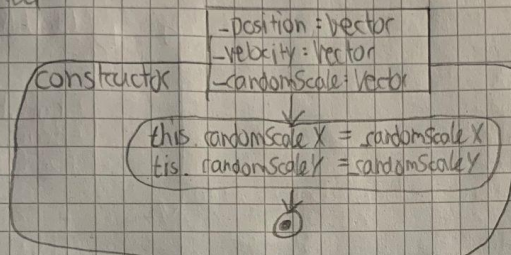 -position : vector
-velocity : Vector
constructor
-randomScale : Vector
this. randomScaleX = randomScaleX
tis. randomScaleY = randomScaleY